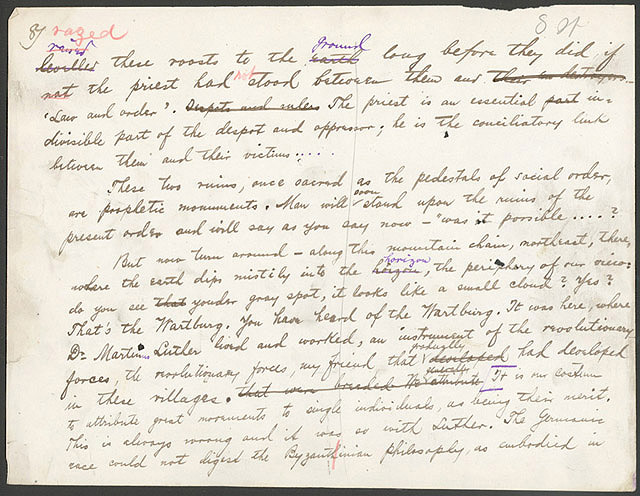 87 razed 8 pt
raised ground
levelled these roosts to the earth long before they did if
not the priest had not stood between them and their destroyer
'Law and order'. Despots and rulers The priest is an essential part in-
divisible part of the despot and oppressor; he is the conciliatory link
between them and their victims.....
These two ruins, once sacred as the pedestals of social order,
soon
are prophetic monuments. Man will stand upon the ruins of the
present order and will say as you say now – "was it possible.....?
But now turn around – along this mountain chain, northeast, there,
horizon
where the earth dips mistily into the horizon, the periphery of our view:
do you see that yonder gray spot, it looks like a small cloud? Yes?
That's the Wartburg. You have heard of the Wartburg. It was here, where
Dr. Martinus Luther lived and worked, an instrument of the revolutionary
gradually
forces, the revolutionary forces, my friend that developed had developed
in these villages. that were breeded We attribute It is our custom
to attribute great movements to single individuals, as being their merit.
This is always wrong and it was so with Luther. The Germanic
race could not digest the Byzantinian philosophy, as embodied in